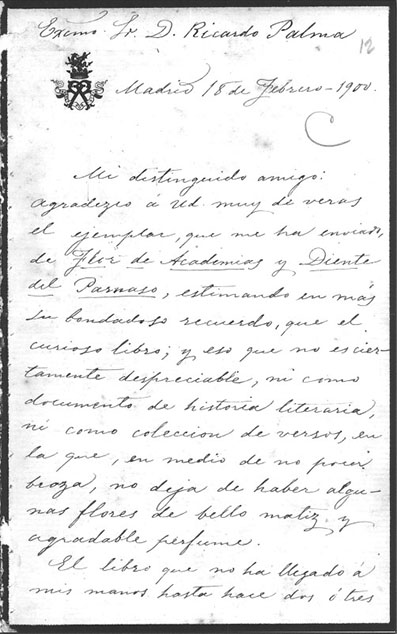 Exmo. Sr. D. Ricardo Palma
12
Madrid 18 de Febrero - 1900.
C
Mi distinguido amigo:
agradezco á Ud. muy de veras
el ejemplar, que me ha enviado,
de Flor de Academias y Diente
del Parnaso, estimando en más
su bondadoso recuerdo, que el
curioso libro; y eso que no es cier-
tamente despreciable, ni como
documento de historia literaria,
ni como coleccion de versos, en
la que, en medio de no poca
broza, no deja de haber algu-
nas flores de bello matiz y
agradable perfume.
El libro que no ha llegado á
mis manos hasta hace dos ó tres